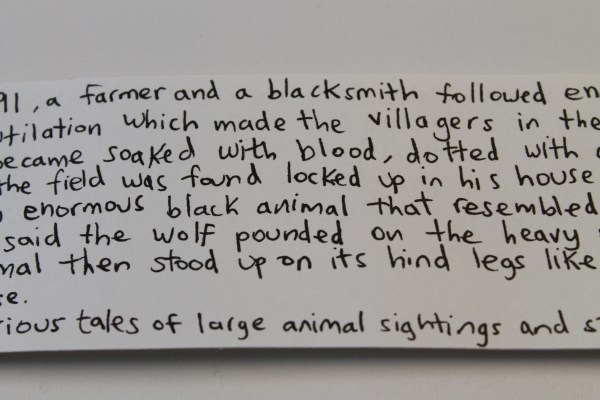 91, a farmer and a blacksmith followed en
utilation which made the villagers in the
became soaked with blood, dotted with
the field was found locked up in his house
enormous black animal that resembled
said the wolf pounded on the heavy
mal then stood up on its hind legs like
se.
rious tales of large animal sightings and st